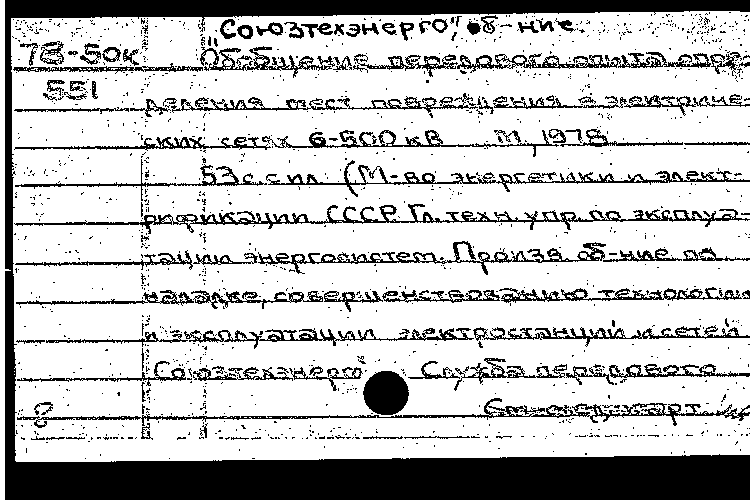 "Союзтехэнерго", об-ние.
78-50к "Обобщение передового опыта опре-
551 деления мест повреждения в электриче-
ских сетях 6-500 кВ М, 1978
53с. с ил. (М-во энергетики и элект-
рификации СССР. Гл. техн. упр. по эксплуа-
тации энергосистем. Произв. об-ние по
наладке, совершенствованию технологии
и эксплуатации электростанций и сетей
"Союзтехэнерго". Служба передового
8 См. след. карт.